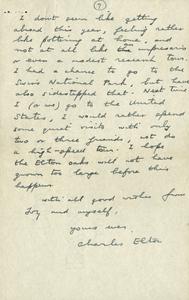 (7)
I don't seem like getting
abroad this year, feeling rather
like pottering at home, and
not at all like the impresario
or even a modest research tour.
I had a chance to go to the
Swiss National Park, but have
also sidestepped that. Next time
I (or we) go to the United
States, I would rather spend
some quiet visits with only
two or three friends, not do
a high-speed tour. I hope
the Elton oaks will not have
grown too large before this
happens.
With all good wishes from
Joy and myself,
yours ever,
Charles Elton